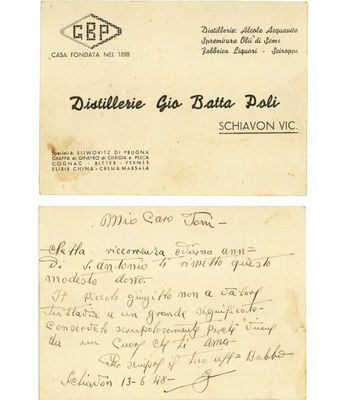 GBP
CASA FONDATA NEL 1898
Distillerie: Alcole Acquavite
Spremitura Olii di Semi
Fabbrica Liquori - Sciroppi
Distillerie Gio Batta Poli
SCHIAVON VIC.
Specialità: SLIWOVITZ DI PRUGNA
GRAPPA di GINEPRO di CILIEGIA e PESCA
COGNAC - BITTER - FERNET
ELIXIR CHINA - CREMA MARSALA
Mio Caro Toni -
Nella ricorrenza odierna
Di S. Antonio ti rimetto questo
modesto dono.
Il Piccolo non a valore
tuttavia a un grande significato -
Conservalo scrupolosamente
da un Cuore che ti ama -
Per sempre il tuo Babbo
Schiavon 13-6-48 -